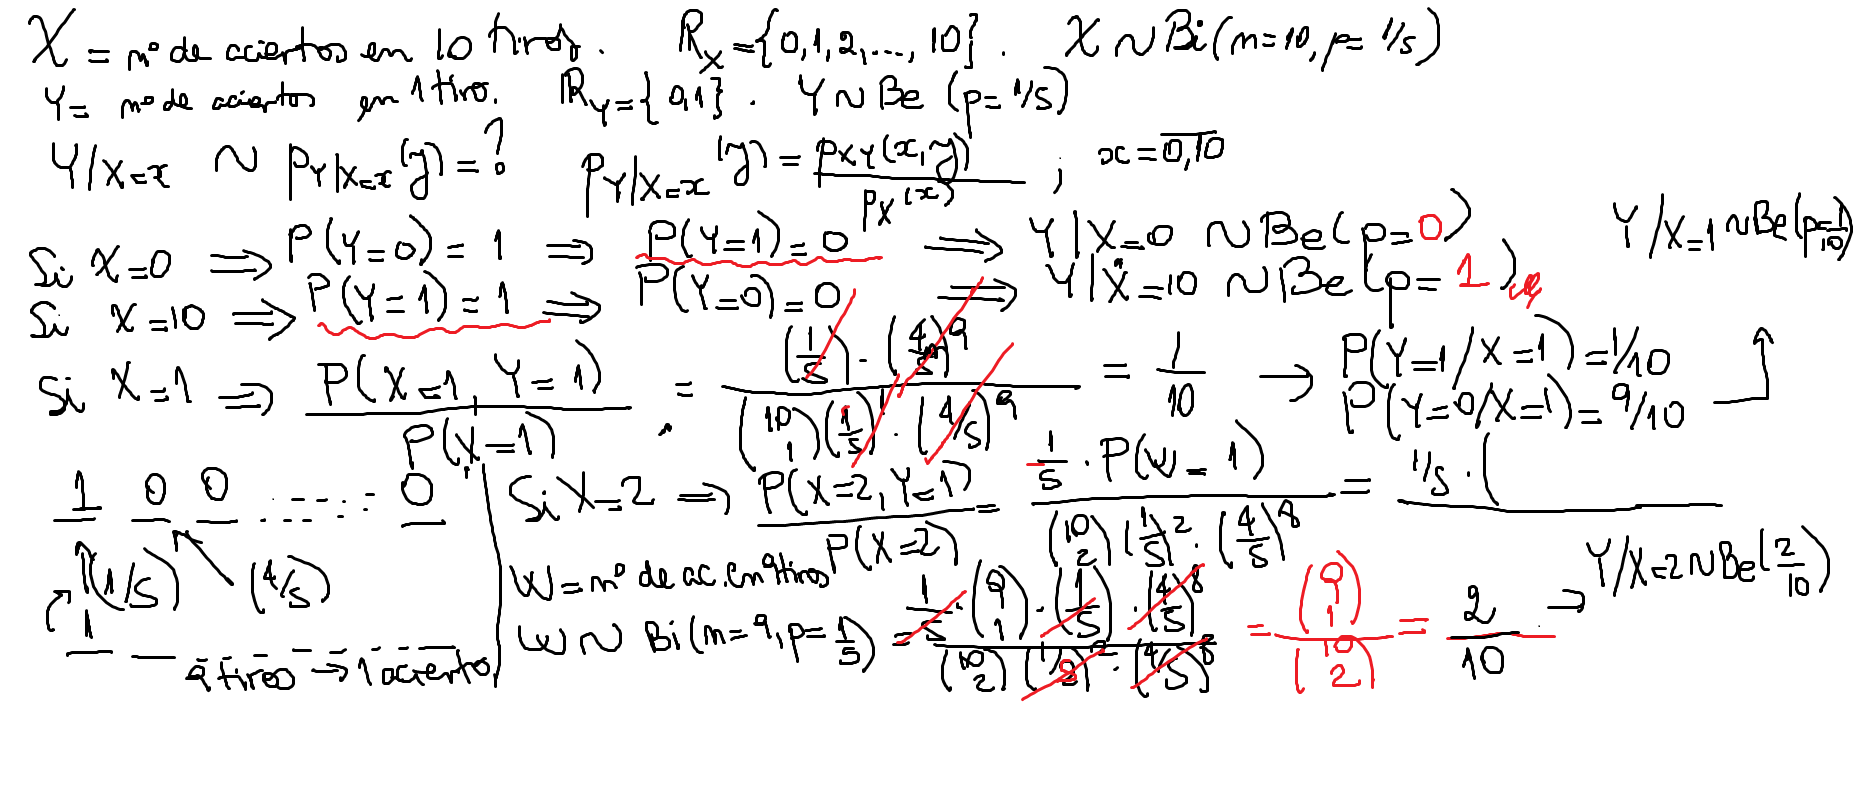 X = nº de aciertos en 10 tiros. R_X = {0,1,2,...,10}. X ~ Bi(n=10, p=1/5)
Y = nº de aciertos en 1 tiro. R_Y = {0,1}. Y ~ Be (p=1/5)
Y/X=x ~ p_Y|X=x(y) = ? p_Y|X=x(y) = p_XY(x,y) / p_X(x) ; x = 0,10
Si X=0 ⇒ P(Y=0) = 1 ⇒ P(Y=1) = 0 ⇒ Y|X=0 ~ Be(p=0) Y/X=1 ~ Be(p=1/10)
Si X=10 ⇒ P(Y=1) = 1 ⇒ P(Y=0) = 0 ⇒ Y|X=10 ~ Be(p=1)
Si X=1 ⇒ P(X=1, Y=1) / P(X=1) = (1/5)·(4/5)^9 / (10 1)(1/5)^1·(4/5)^9 = 1/10 → P(Y=1/X=1) = 1/10
P(Y=0/X=1) = 9/10
1 0 0 ...... 0
(1/5) (4/5)
1
9 tiros → 1 acierto
Si X=2 ⇒ P(X=2, Y=1) / P(X=2) = 1/5 · P(W=1) / (10 2)(1/5)^2·(4/5)^8 = 1/5·(
W = nº de ac. en 9 tiros
W ~ Bi(n=9, p=1/5) = 1/5·(9 1)·(1/5)·(4/5)^8 / (10 2)(1/5)^2·(4/5)^8 = (9 1) / (10 2) = 2/10 → Y/X=2 ~ Be(2/10)